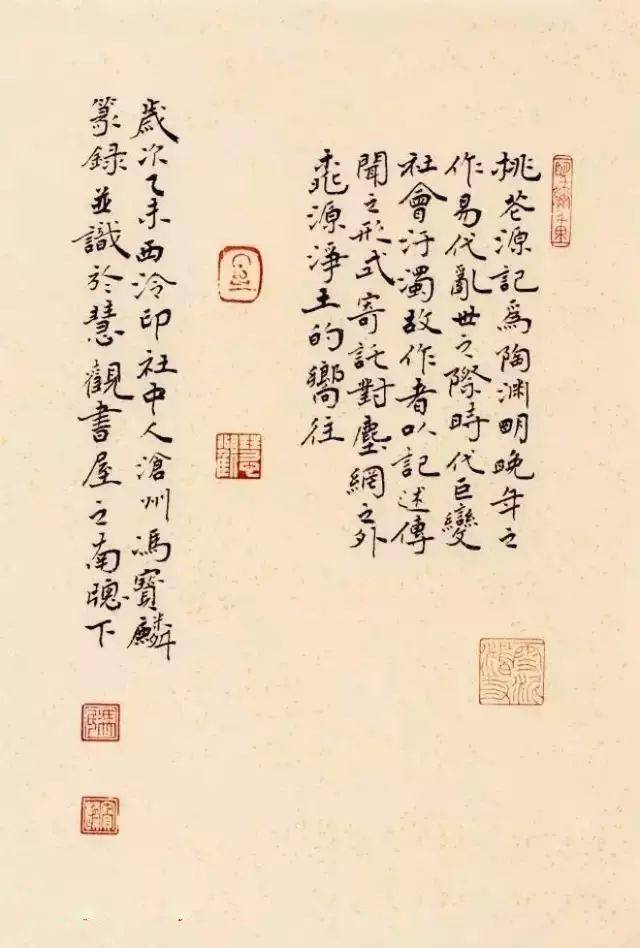 桃花源記為陶渊明晚年之
作易代亂世之際時代巨變
社會汙濁故作者以記述傳
聞之形式寄託對塵網之外
桃源淨土的嚮往
歲次乙未西泠印社中人滄州馮寶麟
篆録並識於慧觀書屋之南窗下